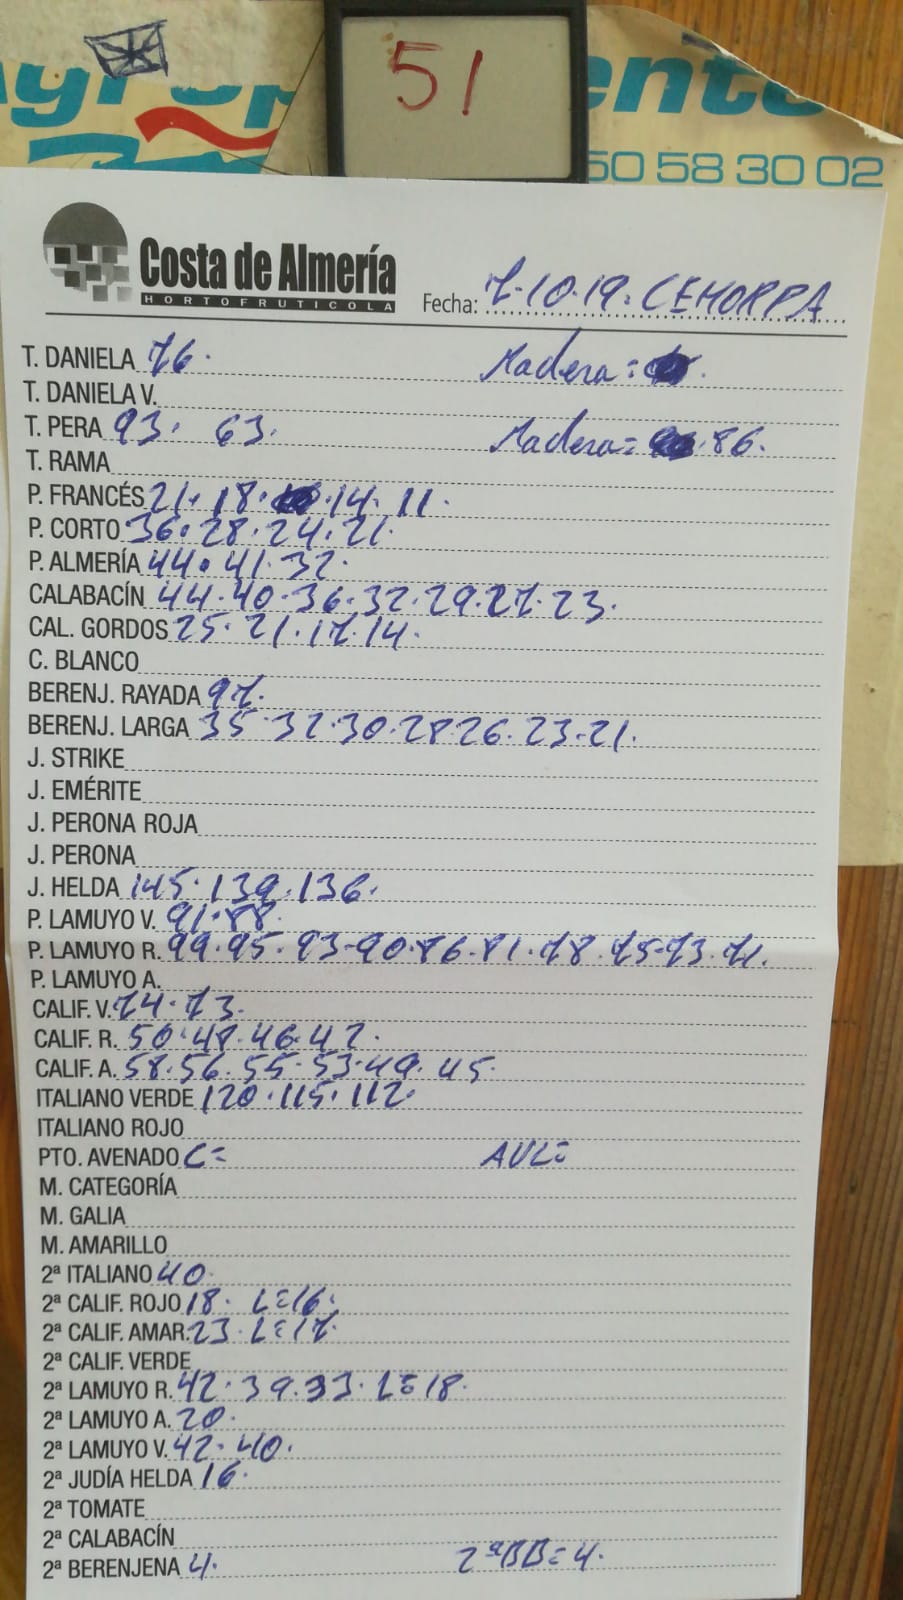 51
50 58 30 02
Costa de Almería
HORTOFRUTICOLA
Fecha: 7-10-19. CEHORPA
T. DANIELA 76. Madera=
T. DANIELA V.
T. PERA 93. 63. Madera= 86.
T. RAMA
P. FRANCÉS 21. 18. 14. 11.
P. CORTO 36. 28. 24. 21.
P. ALMERÍA 44. 41. 32.
CALABACÍN 44. 40. 36. 32. 29. 27. 23.
CAL. GORDOS 25. 21. 17. 14.
C. BLANCO
BERENJ. RAYADA 97.
BERENJ. LARGA 35 32. 30. 28 26. 23. 21.
J. STRIKE
J. EMÉRITE
J. PERONA ROJA
J. PERONA
J. HELDA 145. 139. 136.
P. LAMUYO V. 91. 88.
P. LAMUYO R. 99. 95. 93. 90. 86. 81. 78. 75. 73. 71.
P. LAMUYO A.
CALIF. V. 74. 73.
CALIF. R. 50. 48. 46. 42.
CALIF. A. 58. 56. 55. 53. 49. 45.
ITALIANO VERDE 120. 115. 112.
ITALIANO ROJO
PTO. AVENADO C= AVL=
M. CATEGORÍA
M. GALIA
M. AMARILLO
2ª ITALIANO 40.
2ª CALIF. ROJO 18. L=16.
2ª CALIF. AMAR. 23. L=17.
2ª CALIF. VERDE
2ª LAMUYO R. 42. 39. 33. L=18.
2ª LAMUYO A. 20.
2ª LAMUYO V. 42. 40.
2ª JUDÍA HELDA 16.
2ª TOMATE
2ª CALABACÍN
2ª BERENJENA 4. 2ªBB=4.